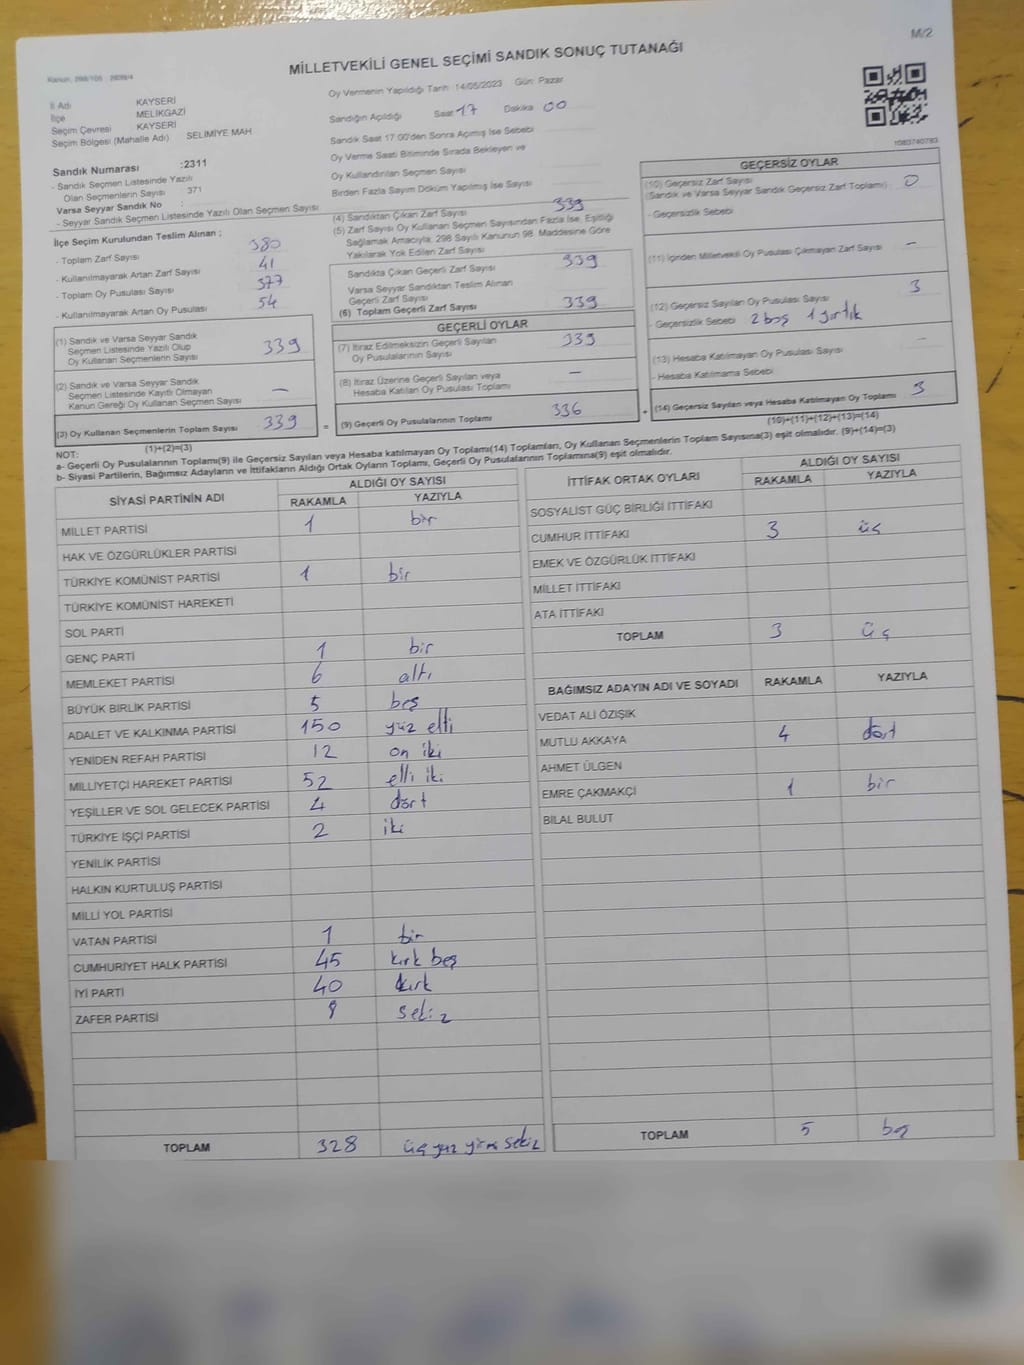 M/2
Kanun: 298/105 : 2839/4
MİLLETVEKİLİ GENEL SEÇİMİ SANDIK SONUÇ TUTANAĞI
İl Adı KAYSERİ
İlçe MELİKGAZİ
Seçim Çevresi KAYSERİ
Seçim Bölgesi (Mahalle Adı) SELİMİYE MAH
Sandık Numarası :2311
- Sandık Seçmen Listesinde Yazılı
Olan Seçmenlerin Sayısı 371
Varsa Seyyar Sandık No :
- Seyyar Sandık Seçmen Listesinde Yazılı Olan Seçmen Sayısı
Oy Vermenin Yapıldığı Tarih :14/05/2023 Gün: Pazar
Sandığın Açıldığı Saat 17 Dakika 00
Sandık Saat 17:00'den Sonra Açılmış İse Sebebi
Oy Verme Saati Bitiminde Sırada Bekleyen ve
Oy Kullandırılan Seçmen Sayısı
Birden Fazla Sayım Döküm Yapılmış İse Sayısı
1083740793
İlçe Seçim Kurulundan Teslim Alınan ;
- Toplam Zarf Sayısı 380
- Kullanılmayarak Artan Zarf Sayısı 41
- Toplam Oy Pusulası Sayısı 377
- Kullanılmayarak Artan Oy Pusulası 54
(1) Sandık ve Varsa Seyyar Sandık
Seçmen Listesinde Yazılı Olup
Oy Kullanan Seçmenlerin Sayısı 339
(2) Sandık ve Varsa Seyyar Sandık
Seçmen Listesinde Kayıtlı Olmayan
Kanun Gereği Oy Kullanan Seçmen Sayısı —
(3) Oy Kullanan Seçmenlerin Toplam Sayısı 339 =
(1)+(2)=(3)
(4) Sandıktan Çıkan Zarf Sayısı 339
(5) Zarf Sayısı Oy Kullanan Seçmen Sayısından Fazla İse, Eşitliği
Sağlamak Amacıyla; 298 Sayılı Kanunun 98. Maddesine Göre
Yakılarak Yok Edilen Zarf Sayısı
Sandıkta Çıkan Geçerli Zarf Sayısı 339
Varsa Seyyar Sandıktan Teslim Alınan
Geçerli Zarf Sayısı
(6) Toplam Geçerli Zarf Sayısı 339
GEÇERLİ OYLAR
(7) İtiraz Edilmeksizin Geçerli Sayılan
Oy Pusulalarının Sayısı 339
(8) İtiraz Üzerine Geçerli Sayılan veya
Hesaba Katılan Oy Pusulası Toplamı —
(9) Geçerli Oy Pusulalarının Toplamı 336 +
GEÇERSİZ OYLAR
(10) Geçersiz Zarf Sayısı
(Sandık ve Varsa Seyyar Sandık Geçersiz Zarf Toplamı) 0
- Geçersizlik Sebebi
(11) İçinden Milletvekili Oy Pusulası Çıkmayan Zarf Sayısı —
(12) Geçersiz Sayılan Oy Pusulası Sayısı 3
- Geçersizlik Sebebi 2 boş 1 yırtık
(13) Hesaba Katılmayan Oy Pusulası Sayısı —
- Hesaba Katılmama Sebebi
(14) Geçersiz Sayılan veya Hesaba Katılmayan Oy Toplamı 3
(10)+(11)+(12)+(13)=(14)
NOT:
a- Geçerli Oy Pusulalarının Toplamı(9) ile Geçersiz Sayılan veya Hesaba katılmayan Oy Toplamı(14) Toplamları, Oy Kullanan Seçmenlerin Toplam Sayısına(3) eşit olmalıdır. (9)+(14)=(3)
b- Siyasi Partilerin, Bağımsız Adayların ve İttifakların Aldığı Ortak Oyların Toplamı, Geçerli Oy Pusulalarının Toplamına(9) eşit olmalıdır.
SİYASİ PARTİNİN ADI ALDIĞI OY SAYISI
RAKAMLA YAZIYLA
MİLLET PARTİSİ 1 bir
HAK VE ÖZGÜRLÜKLER PARTİSİ
TÜRKİYE KOMÜNİST PARTİSİ 1 bir
TÜRKİYE KOMÜNİST HAREKETİ
SOL PARTİ
GENÇ PARTİ 1 bir
MEMLEKET PARTİSİ 6 altı
BÜYÜK BİRLİK PARTİSİ 5 beş
ADALET VE KALKINMA PARTİSİ 150 yüz elli
YENİDEN REFAH PARTİSİ 12 on iki
MİLLİYETÇİ HAREKET PARTİSİ 52 elli iki
YEŞİLLER VE SOL GELECEK PARTİSİ 4 dört
TÜRKİYE İŞÇİ PARTİSİ 2 iki
YENİLİK PARTİSİ
HALKIN KURTULUŞ PARTİSİ
MİLLİ YOL PARTİSİ
VATAN PARTİSİ 1 bir
CUMHURİYET HALK PARTİSİ 45 kırk beş
İYİ PARTİ 40 kırk
ZAFER PARTİSİ 8 sekiz
TOPLAM 328 üç yüz yirmi sekiz
İTTİFAK ORTAK OYLARI ALDIĞI OY SAYISI
RAKAMLA YAZIYLA
SOSYALİST GÜÇ BİRLİĞİ İTTİFAKI
CUMHUR İTTİFAKI 3 üç
EMEK VE ÖZGÜRLÜK İTTİFAKI
MİLLET İTTİFAKI
ATA İTTİFAKI
TOPLAM 3 üç
BAĞIMSIZ ADAYIN ADI VE SOYADI RAKAMLA YAZIYLA
VEDAT ALİ ÖZIŞIK
MUTLU AKKAYA 4 dört
AHMET ÜLGEN
EMRE ÇAKMAKÇİ 1 bir
BİLAL BULUT
TOPLAM 5 beş